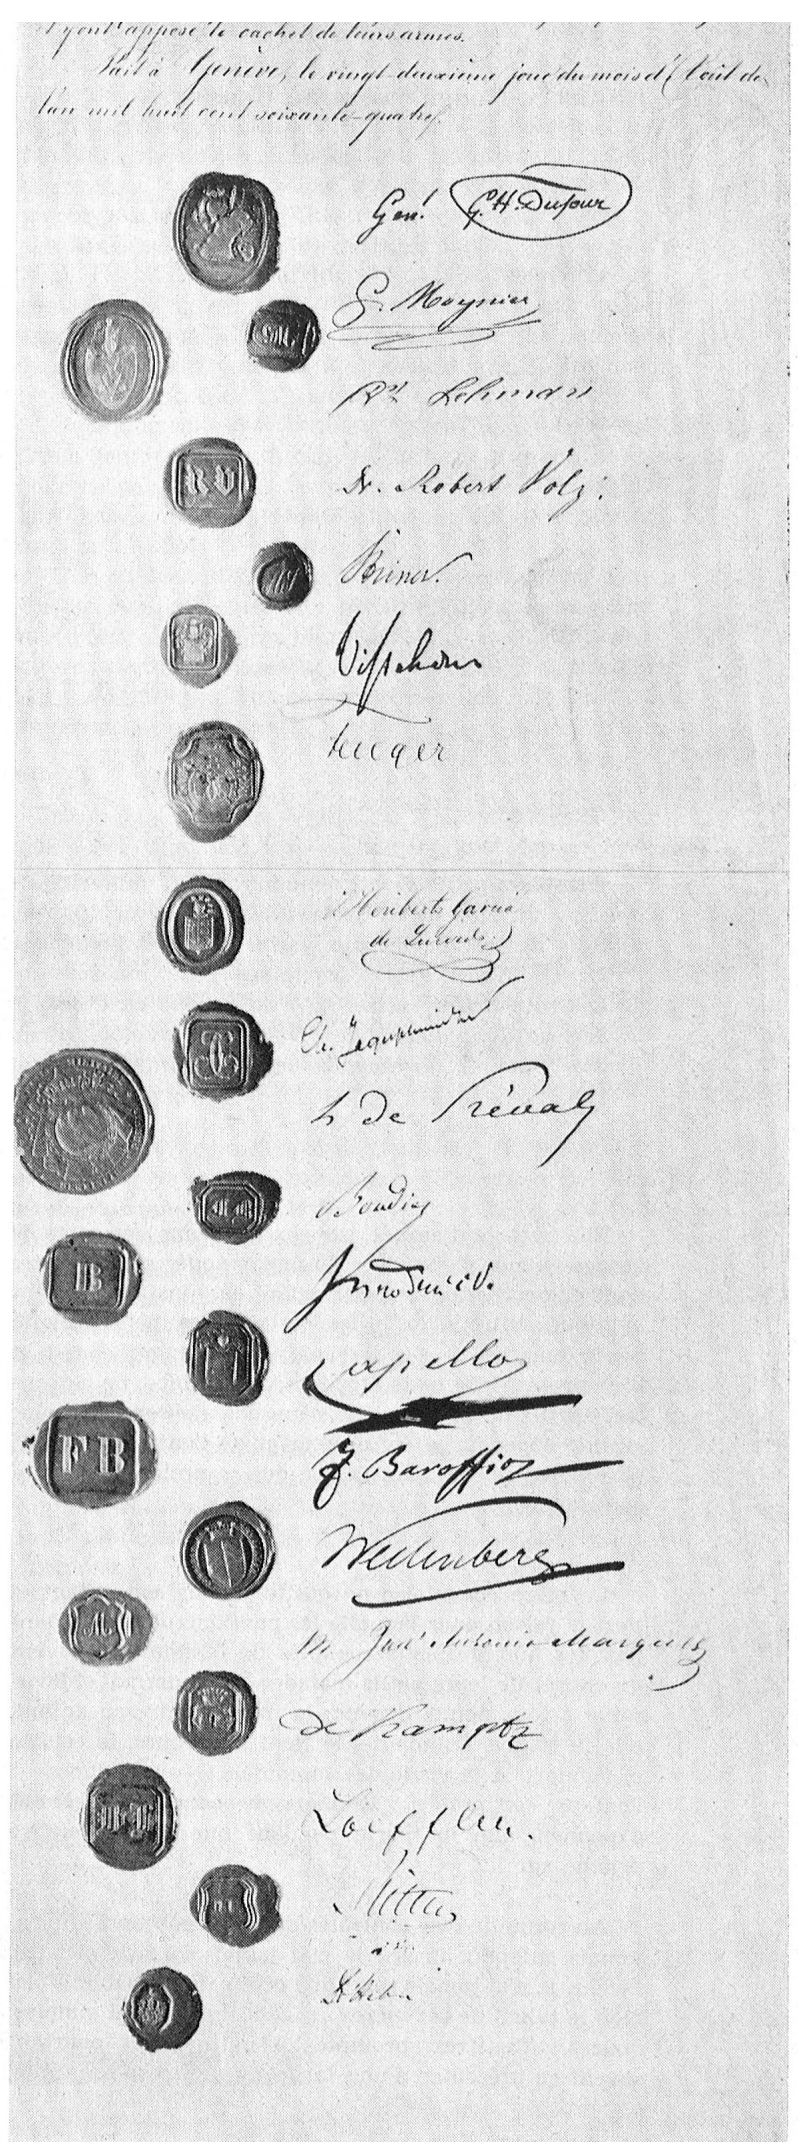 et y ont apposé le cachet de leurs armes.
Fait à Genève, le vingt-deuxième jour du mois d'Août de
l'an mil huit cent soixante-quatre.
Gen.l G. H. Dufour
G. Moynier
GM
Dr Lehmann
RV
Dr. Robert Volz.
Briner.
Visschers
Fenger
Heriberto Garcia
de Quevedo
Ch. Jagerschmidt
h de Préval
Boudier
B
Capello
FB
F. Baroffio
M.
José Antonio Marques
de Kamptz
Loeffler.
Ritter
Dr Hahn